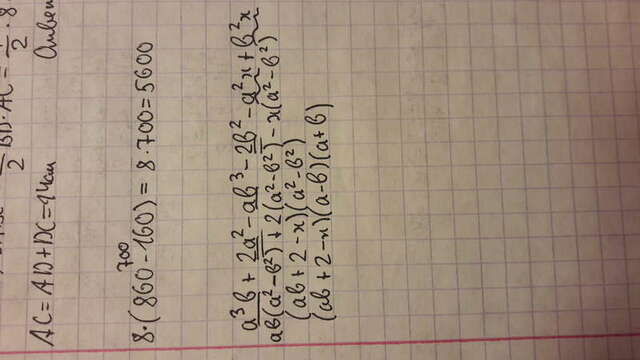 2 BD · AC = 1/2 · 8
AC = AD + DC = 14см Ответ
700
8·(860-160) = 8·700 = 5600
a³b + 2a² - ab³ - 2b² - a²x + b²x
ab(a²-b²) + 2(a²-b²) - x(a²-b²)
(ab + 2 - x)(a²-b²)
(ab + 2 - x)(a-b)(a+b)